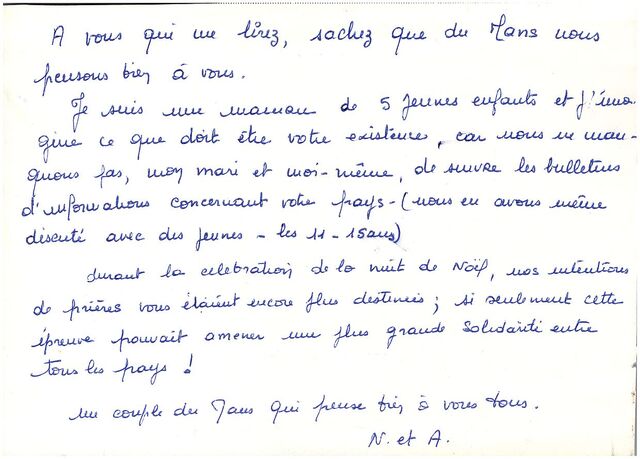 A vous qui me lirez, sachez que du Mans nous
pensons bien à vous.
Je suis une maman de 5 jeunes enfants et j'ima-
gine ce que doit être votre existence, car nous ne man-
quons pas, mon mari et moi-même, de suivre les bulletins
d'informations concernant votre pays - (nous en avons même
discuté avec des jeunes - les 11 - 15 ans)
durant la celebration de la nuit de Noël, nos intentions
de prières vous étaient encore plus destinées ; si seulement cette
épreuve pouvait amener une plus grande solidarité entre
tous les pays !
un couple du Mans qui pense bien à vous tous.
N. et A.